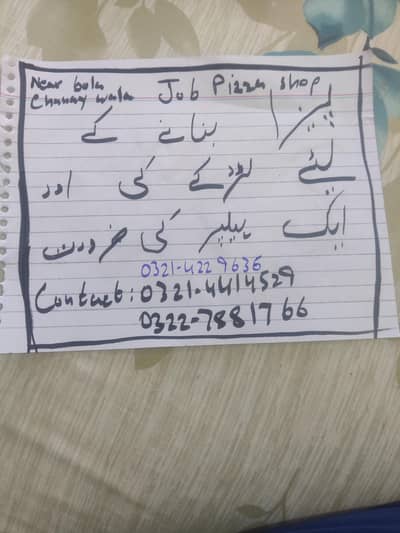 Near bala
Channay wala
Job Pizza shop
پیزا بنانے کے
لیئے لڑکے کی اور
ایک ہیلپر کی ضرورت
0321-4229636
Contact: 0321-4414529
0322-7881766